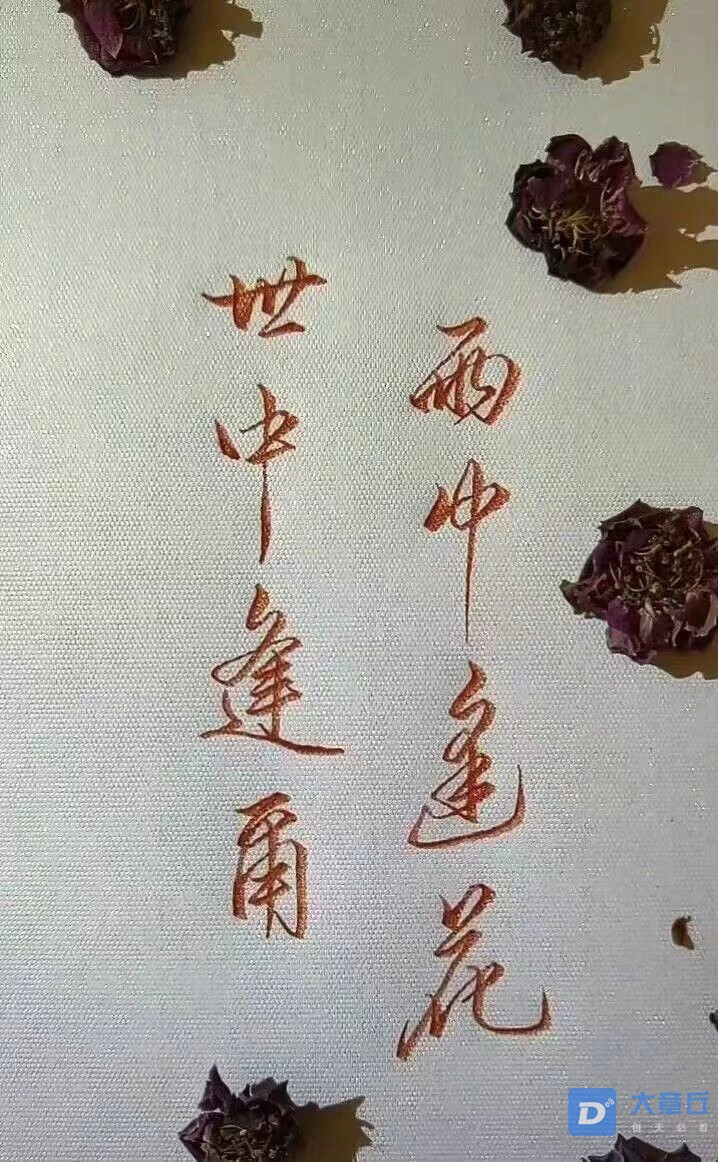 世中逢爾
雨中逢花
大章丘
每天必看